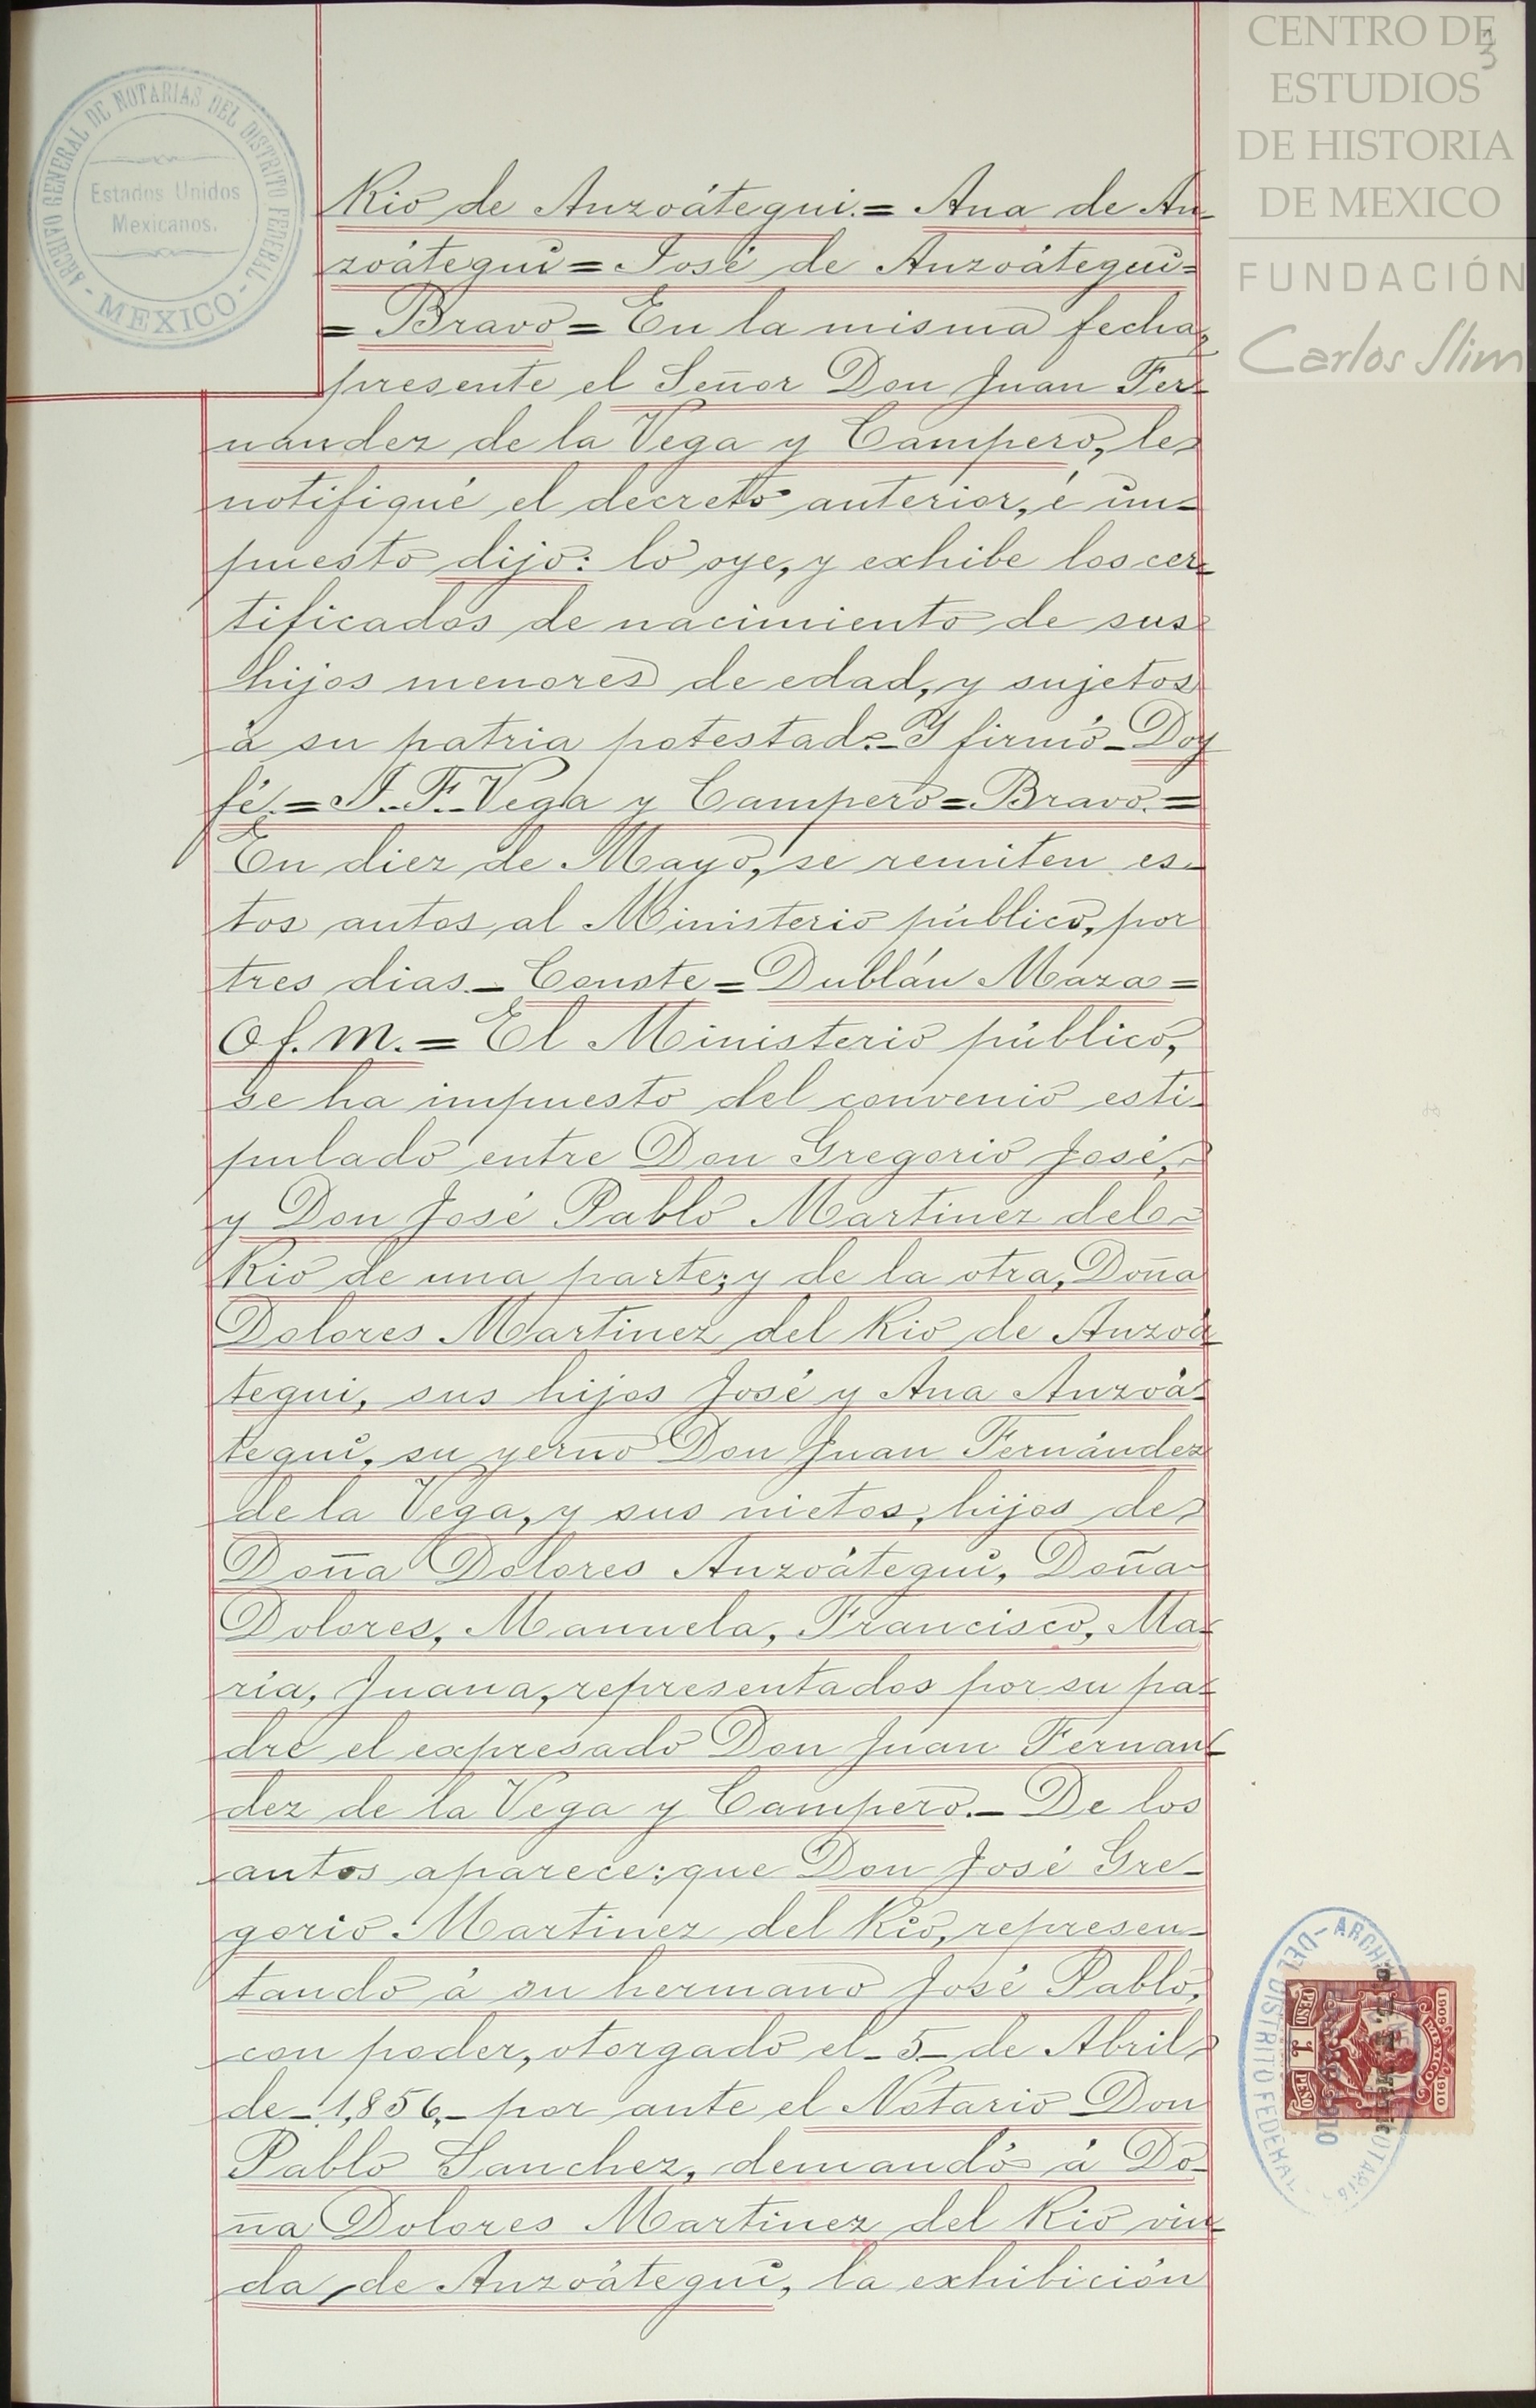 CENTRO DE
ESTUDIOS
DE HISTORIA
DE MEXICO
FUNDACIÓN
Carlos Slim
3
ARCHIVO GENERAL DE NOTARIAS DEL DISTRITO FEDERAL - MEXICO -
Estados Unidos
Mexicanos.
Rio de Anzoátegui.= Ana de An-
zoátegui = José de Anzoátegui=
= Bravo = En la misma fecha,
presente el Señor Don Juan Fer-
nandez de la Vega y Campero, le
notifiqué el decreto anterior, é im-
puesto dijo: lo oye, y exhibe los cer-
tificados de nacimiento de sus
hijos menores de edad, y sujetos
á su patria potestad.- Y firmó - Doy
fé.= J. F. Vega y Campero = Bravo.=
En diez de Mayo, se remiten es-
tos autos al Ministerio público, por
tres dias.- Conste = Dublán Maza =
Of. M. = El Ministerio público,
se ha impuesto del convenio esti-
pulado entre Don Gregorio José,
y Don José Pablo Martinez del
Rio de una parte; y de la otra, Doña
Dolores Martinez del Rio de Anzoá
tegui, sus hijos José y Ana Anzoá-
tegui, su yerno Don Juan Fernández
de la Vega, y sus nietos, hijos de
Doña Dolores Anzoátegui, Doña
Dolores, Manuela, Francisco, Ma-
ria, Juana, representados por su pa-
dre el expresado Don Juan Fernan-
dez de la Vega y Campero.- De los
autos aparece: que Don José Gre-
gorio Martinez del Rio, represen-
tando á su hermano José Pablo,
con poder, otorgado el - 5 - de Abril
de - 1,856,- por ante el Notario Don
Pablo Sanchez, demandó á Do-
ña Dolores Martinez del Rio viu-
da, de Anzoátegui, la exhibición
DEL DISTRITO FEDERAL
1909 MEXICO 1910
PESO 1 PESO